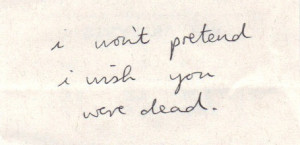 i won't pretend
i wish you
were dead.